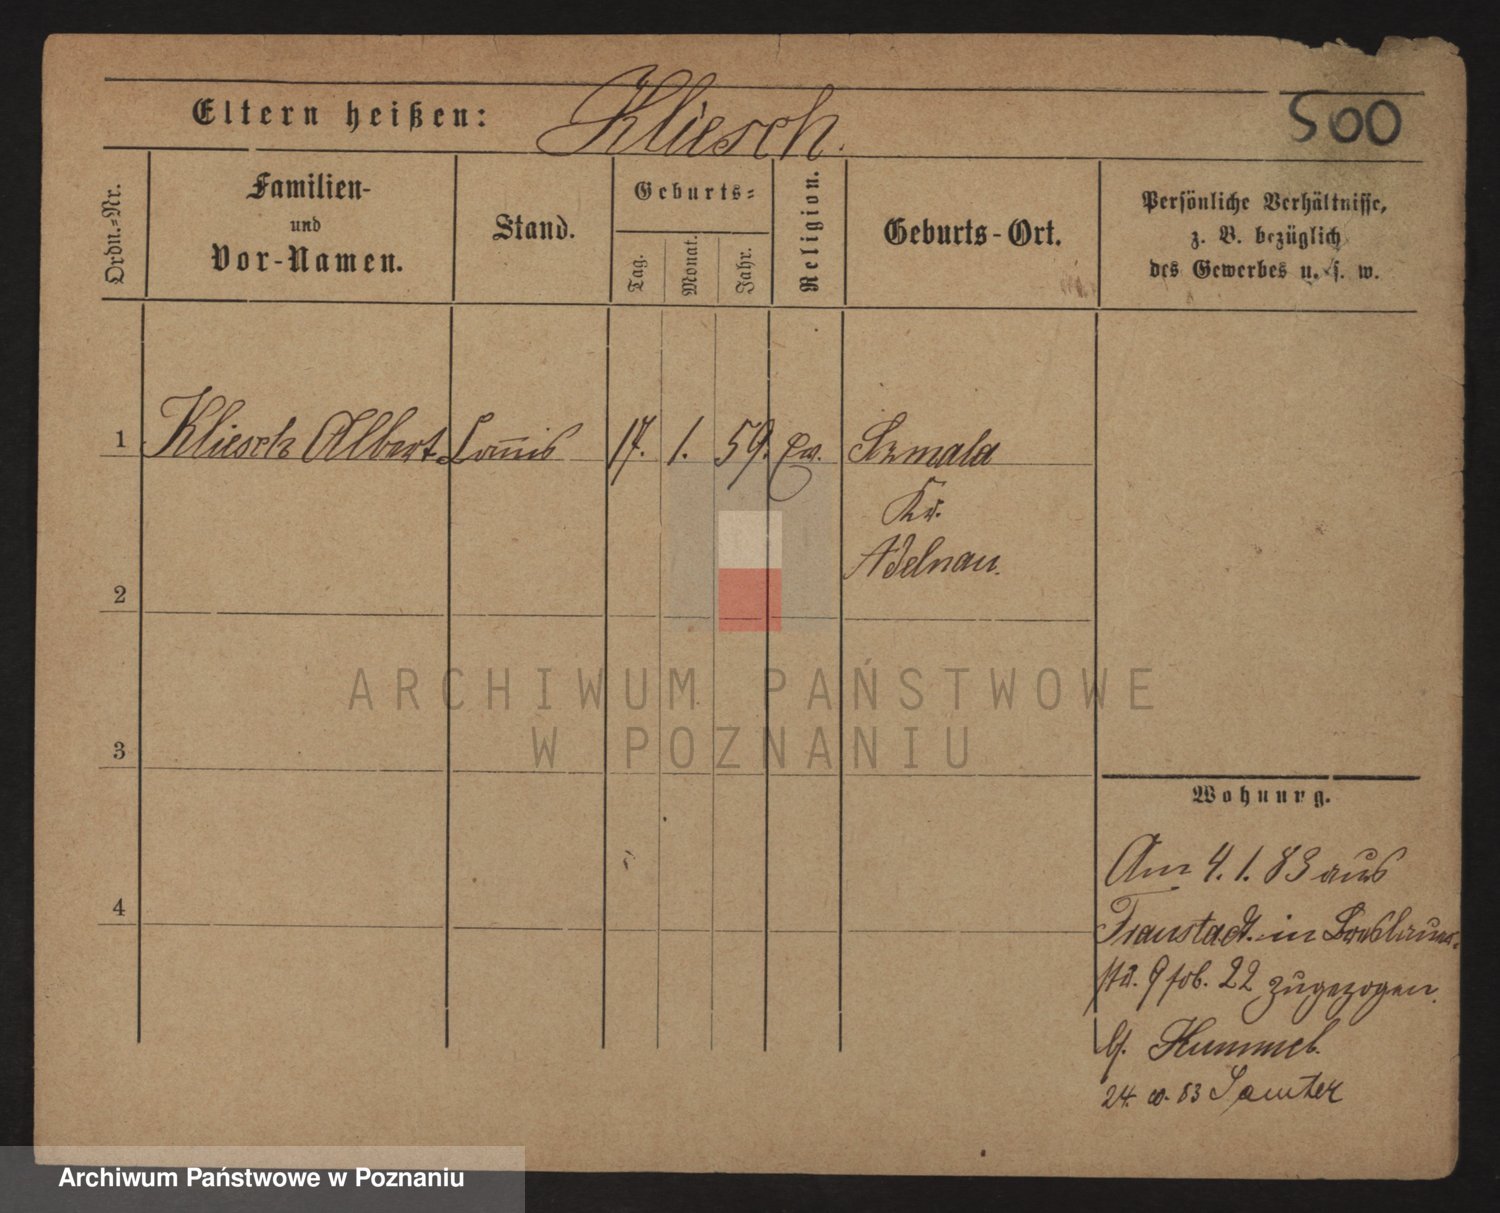 Eltern heißen: Kliesch.
500
Ordn.-Nr.
Familien-
und
Vor-Namen.
Stand.
Geburts-
Tag.
Monat.
Jahr.
Religion.
Geburts-Ort.
Persönliche Verhältnisse,
z. B. bezüglich
des Gewerbes u. s. w.
1 Kliesch Albert 17. 1. 59. Ev.
Kr.
Adelnau.
2
3
4
Wohnung.
Am 4. 1. 83 aus
Fraustadt in Breslauer-
str. 9 22 zugezogen.
Hummel.
24. 83 Samter
ARCHIWUM PAŃSTWOWE
W POZNANIU
Archiwum Państwowe w Poznaniu